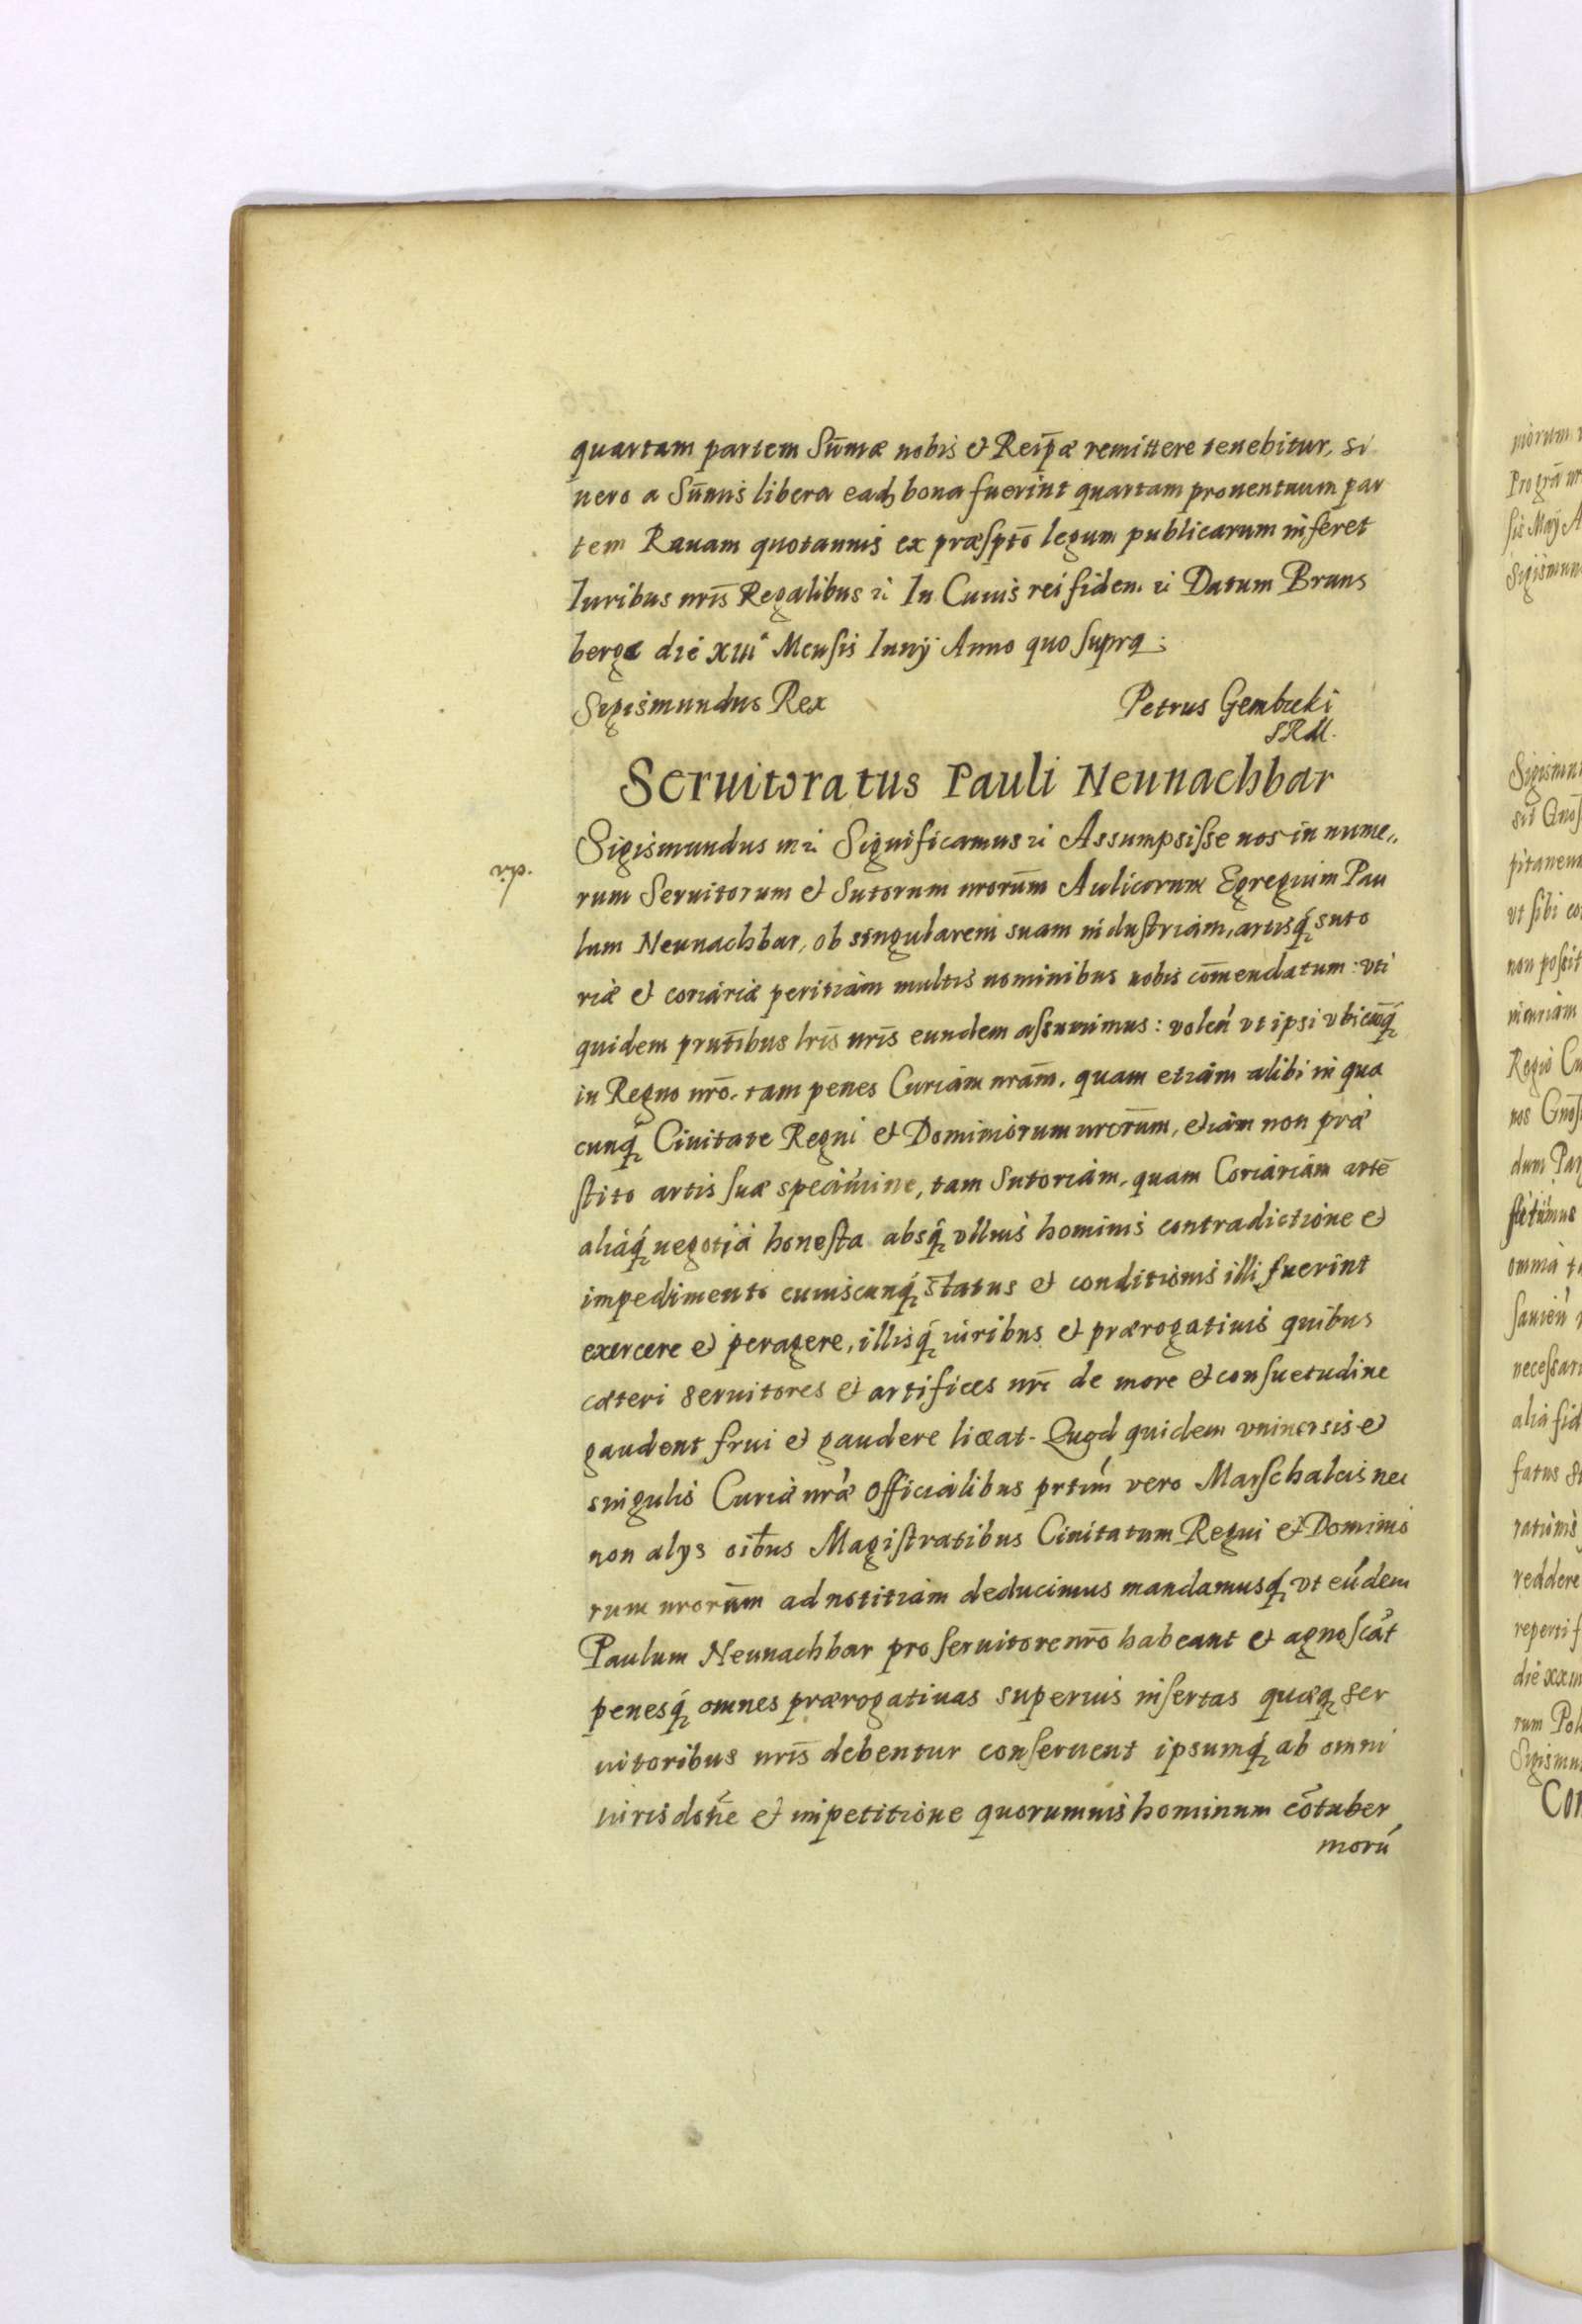 quartam partem Sum̄æ nobis et Reip̄æ remittere tenebitur, si
vero a Sum̄is libera eadē bona fuerint quartam prouentuum par
tem Rauam quotannis ex præscpto legum publicarum inferet
Iuribus nr̄is Regalibus ꝛc̄ In Cuius rei fidem ꝛc̄ Datum Bruns
bergæ die XIIIª Mensis Iunÿ Anno quo supra:
Sigismundus Rex
Petrus Gembicki
SRM.
Seruitoratus Pauli Neunachbar
Sigismundus mꝛc̄ Significamus ꝛc̄ Assumpsisse nos in nume,,
rum Seruitorum et Sutorum nrorum̄ Aulicorum Egregium Pau
lum Neunachbar, ob singularem suam industriam, artisq́ suto
riæ et coriariæ peritiam multis nominibus nobis com̄endatum: vti
quidem pr̄ntibus lr̄is nr̄is eundem assumimus: volen' vt ipsi vbicunq́
in Regno nrō. tam penes Curiam nram̄, quam etiam alibi in qua
cunq́ Ciuitate Regni et Dominiorum nrorum̄, etiam non præ
stito artis suæ specimine, tam Sutoriam, quam Coriariam artē
aliaq́ negotia honesta absq́ vllius hominis contradictione et
impedimento cuiuscunq́ status et conditionis illi fuerint
exercere et peragere, illisq́ iuribus et prærogatiuis quibus
cæteri seruitores et artifices nrī de more et consuetudine
gaudent frui et gaudere liceat. Quod quidem vniuersis et
singulis Curiæ nræ Officialibus prtim' vero Marschalcis nec
non alys oibus Magistratibus Ciuitatum Regni et Dominio
rum nrorum̄ ad notitiam deducimus mandamusq́ vt eundem
Paulum Neunachbar pro seruitore nrō habeant et agnoscāt
penesq́ omnes prærogatiuas superius insertas quæq́ ser
uitoribus nr̄is debentur conseruent ipsumq́ ab omni
iurisdone et impetitione quorumuis hominum cōtuber
morú